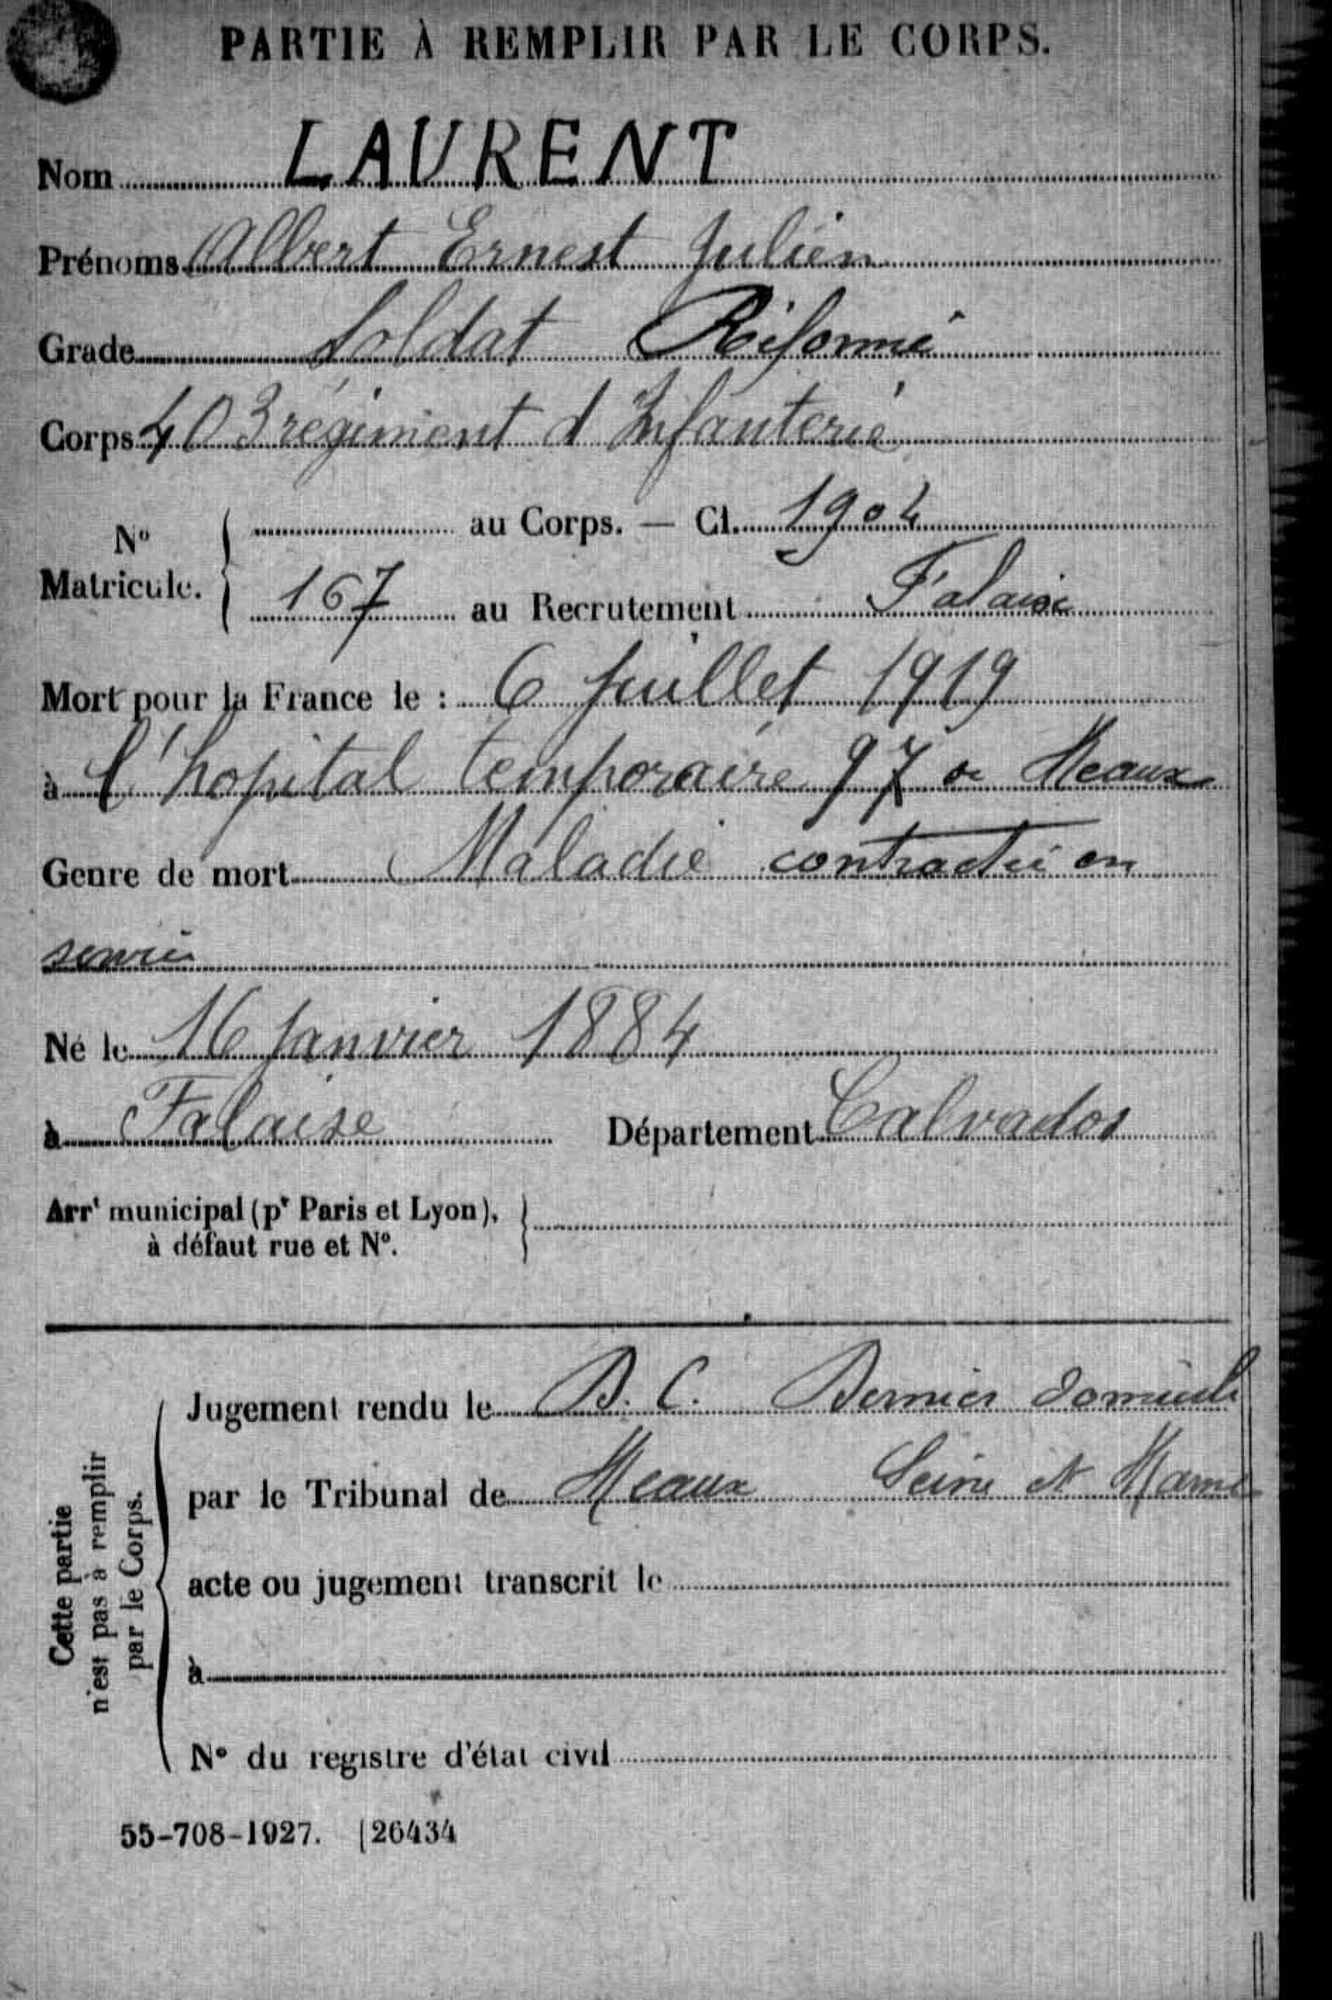 PARTIE À REMPLIR PAR LE CORPS.
Nom LAURENT
Prénoms Albert Ernest Julien
Grade Soldat Réformé
Corps 403 régiment d'Infanterie
N° Matricule. { au Corps. — Cl. 1904
167 au Recrutement Falaise
Mort pour la France le : 6 Juillet 1919
à l'hopital temporaire 97 de Meaux
Genre de mort Maladie contractée en
service
Né le 16 Janvier 1884
à Falaise Département Calvados
Arrt municipal (pr Paris et Lyon), }
à défaut rue et N°.
Cette partie
n'est pas à remplir
par le Corps.
Jugement rendu le D. C. Dernier domicile
par le Tribunal de Meaux Seine et Marne
acte ou jugement transcrit le
à
N° du registre d'état civil
55-708-1927. [26434